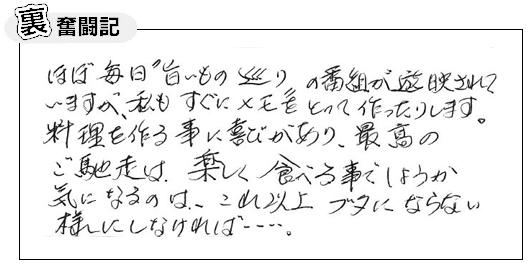 裏 奮闘記
ほぼ毎日〝旨いもの巡り〟の番組が放映されて
いますが、私もすぐにメモをとって作ったりします。
料理を作る事に喜びがあり、最高の
ご馳走は、楽しく食べる事でしょうか
気になるのは、これ以上ブタにならない
様にしなければ……。